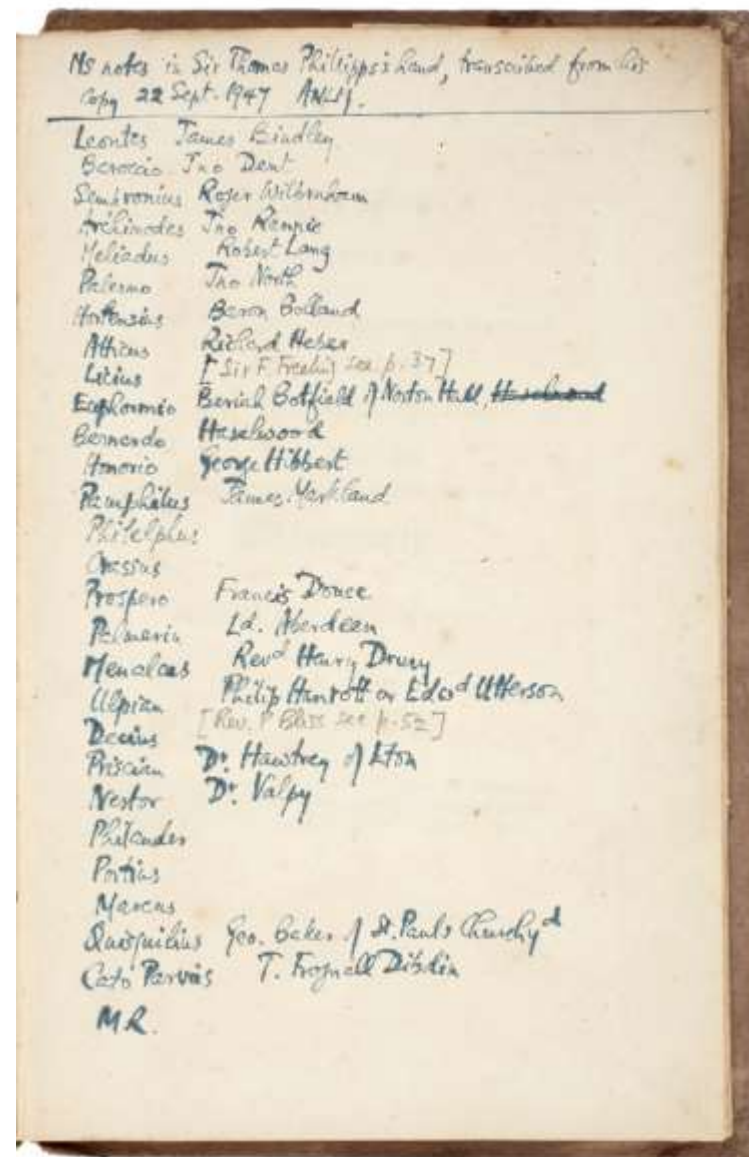 MS notes in Sir Thomas Phillipps's hand, transcribed from his
copy 22 Sept. 1947 ANLM.
Leontes James Bindley
Berocio Jno Dent
Sempronius Roger Wilbraham
Archimedes Jno Rennie
Meliadus Robert Lang
Palermo Jno North
Hortensius Baron Bolland
Atticus Richard Heber
Licius [Sir F. Freeling see p. 37]
Euphormio Beriah Botfield of Norton Hall, Haselwood
Bernardo Haselwood
Honorio George Hibbert
Pamphilus James Markland
Philelphus
Crassus
Prospero Francis Douce
Palmerin Ld. Aberdeen
Menalcas Revd Henry Drury
Ulpian Philip Hanrott or Edwd Utterson
Decius [Rev. P Bliss see p. 52]
Priscian Dr. Hawtrey of Eton
Nestor Dr. Valpy
Philander
Portius
Marcus
Quisquilius Geo. Baker of St. Pauls Churchyd
Cato Parvus T. Frognall Dibdin
M.R.